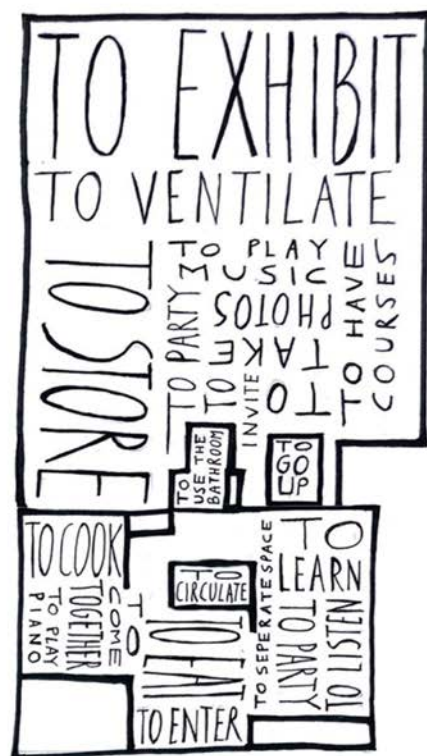 TO EXHIBIT
TO VENTILATE
TO STORE
TO PARTY
TO PLAY
MUSIC
TO TAKE
PHOTOS
TO
INVITE
TO HAVE
COURSES
TO
USE THE
BATHROOM
TO
GO
UP
TO COOK
TO COME
TOGETHER
TO PLAY
PIANO
TO
CIRCULATE
TO EAT
TO ENTER
TO SEPERATE SPACE
TO
LEARN
TO PARTY
TO LISTEN